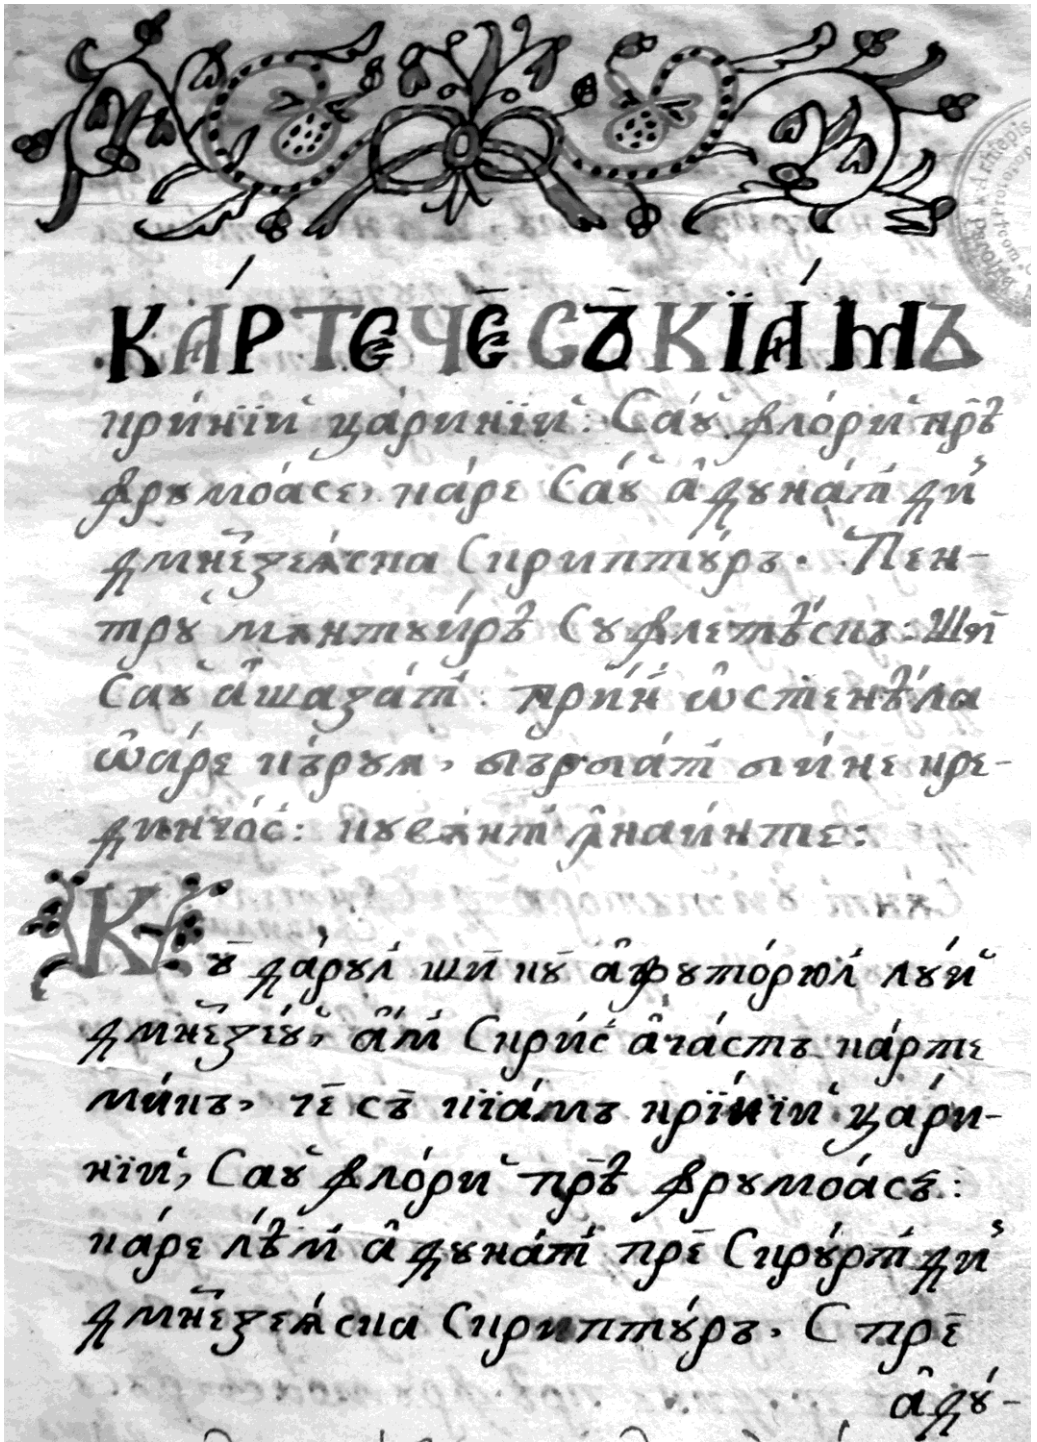 КА́РТЕ ЧЕ̄ СЪ̄ КЇА́МЪ
кри́нїй ца́ринїй: Са́ꙋ фло́ри пр̄ѣ
фрꙋмоа́се, ка́ре Са́ꙋ а҆дꙋна́т ди́н
дмн҃еꙁеѧ́ска Скриптꙋ́ръ. Пен-
трꙋ мѫнтꙋи́рѣ Сꙋфлетѣ́скъ: Шӣ
Саꙋ а҆шаꙁа́т: при́н ѡ҆стенѣ́ла
ѡ҆а́ре кърꙋѧ, бърба́т би́не кре-
динчо́с: кꙋвѫ́нт ꙟ҆наи́нте:
Кꙋ̄ да́рꙋл шӣ кꙋ̄ а҆жꙋто́рюл лꙋ́й
дмн҃еꙁе́ꙋ, а҆́м Скри́с а҆ча́стъ ка́рте
ми́къ, че̄ съ̄ кїа́мъ крїи́нїй ца́ри-
нїй, Саꙋ фло́ри пр̄ѣ фрꙋмоа́съ:
ка́ре лѣ́м а҆дꙋна́т пре̄ Скꙋ́рт ди́н
дмн҃еꙁеѧ́ска Скриптꙋ́ръ. С пре̄
а҆дꙋ́-